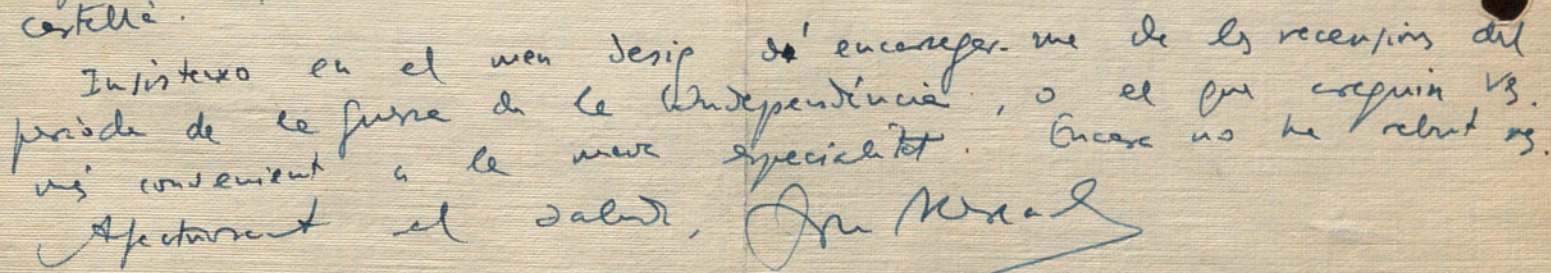 castellà.
Insisteixo en el meu desig d'encarregar-me de les recensions del
període de la guerra de la Independència, o el que creguin Vs.
més convenient a la meva especialitat. Encara no he rebut res.
Afectuosament el saluda, Joan Mercader